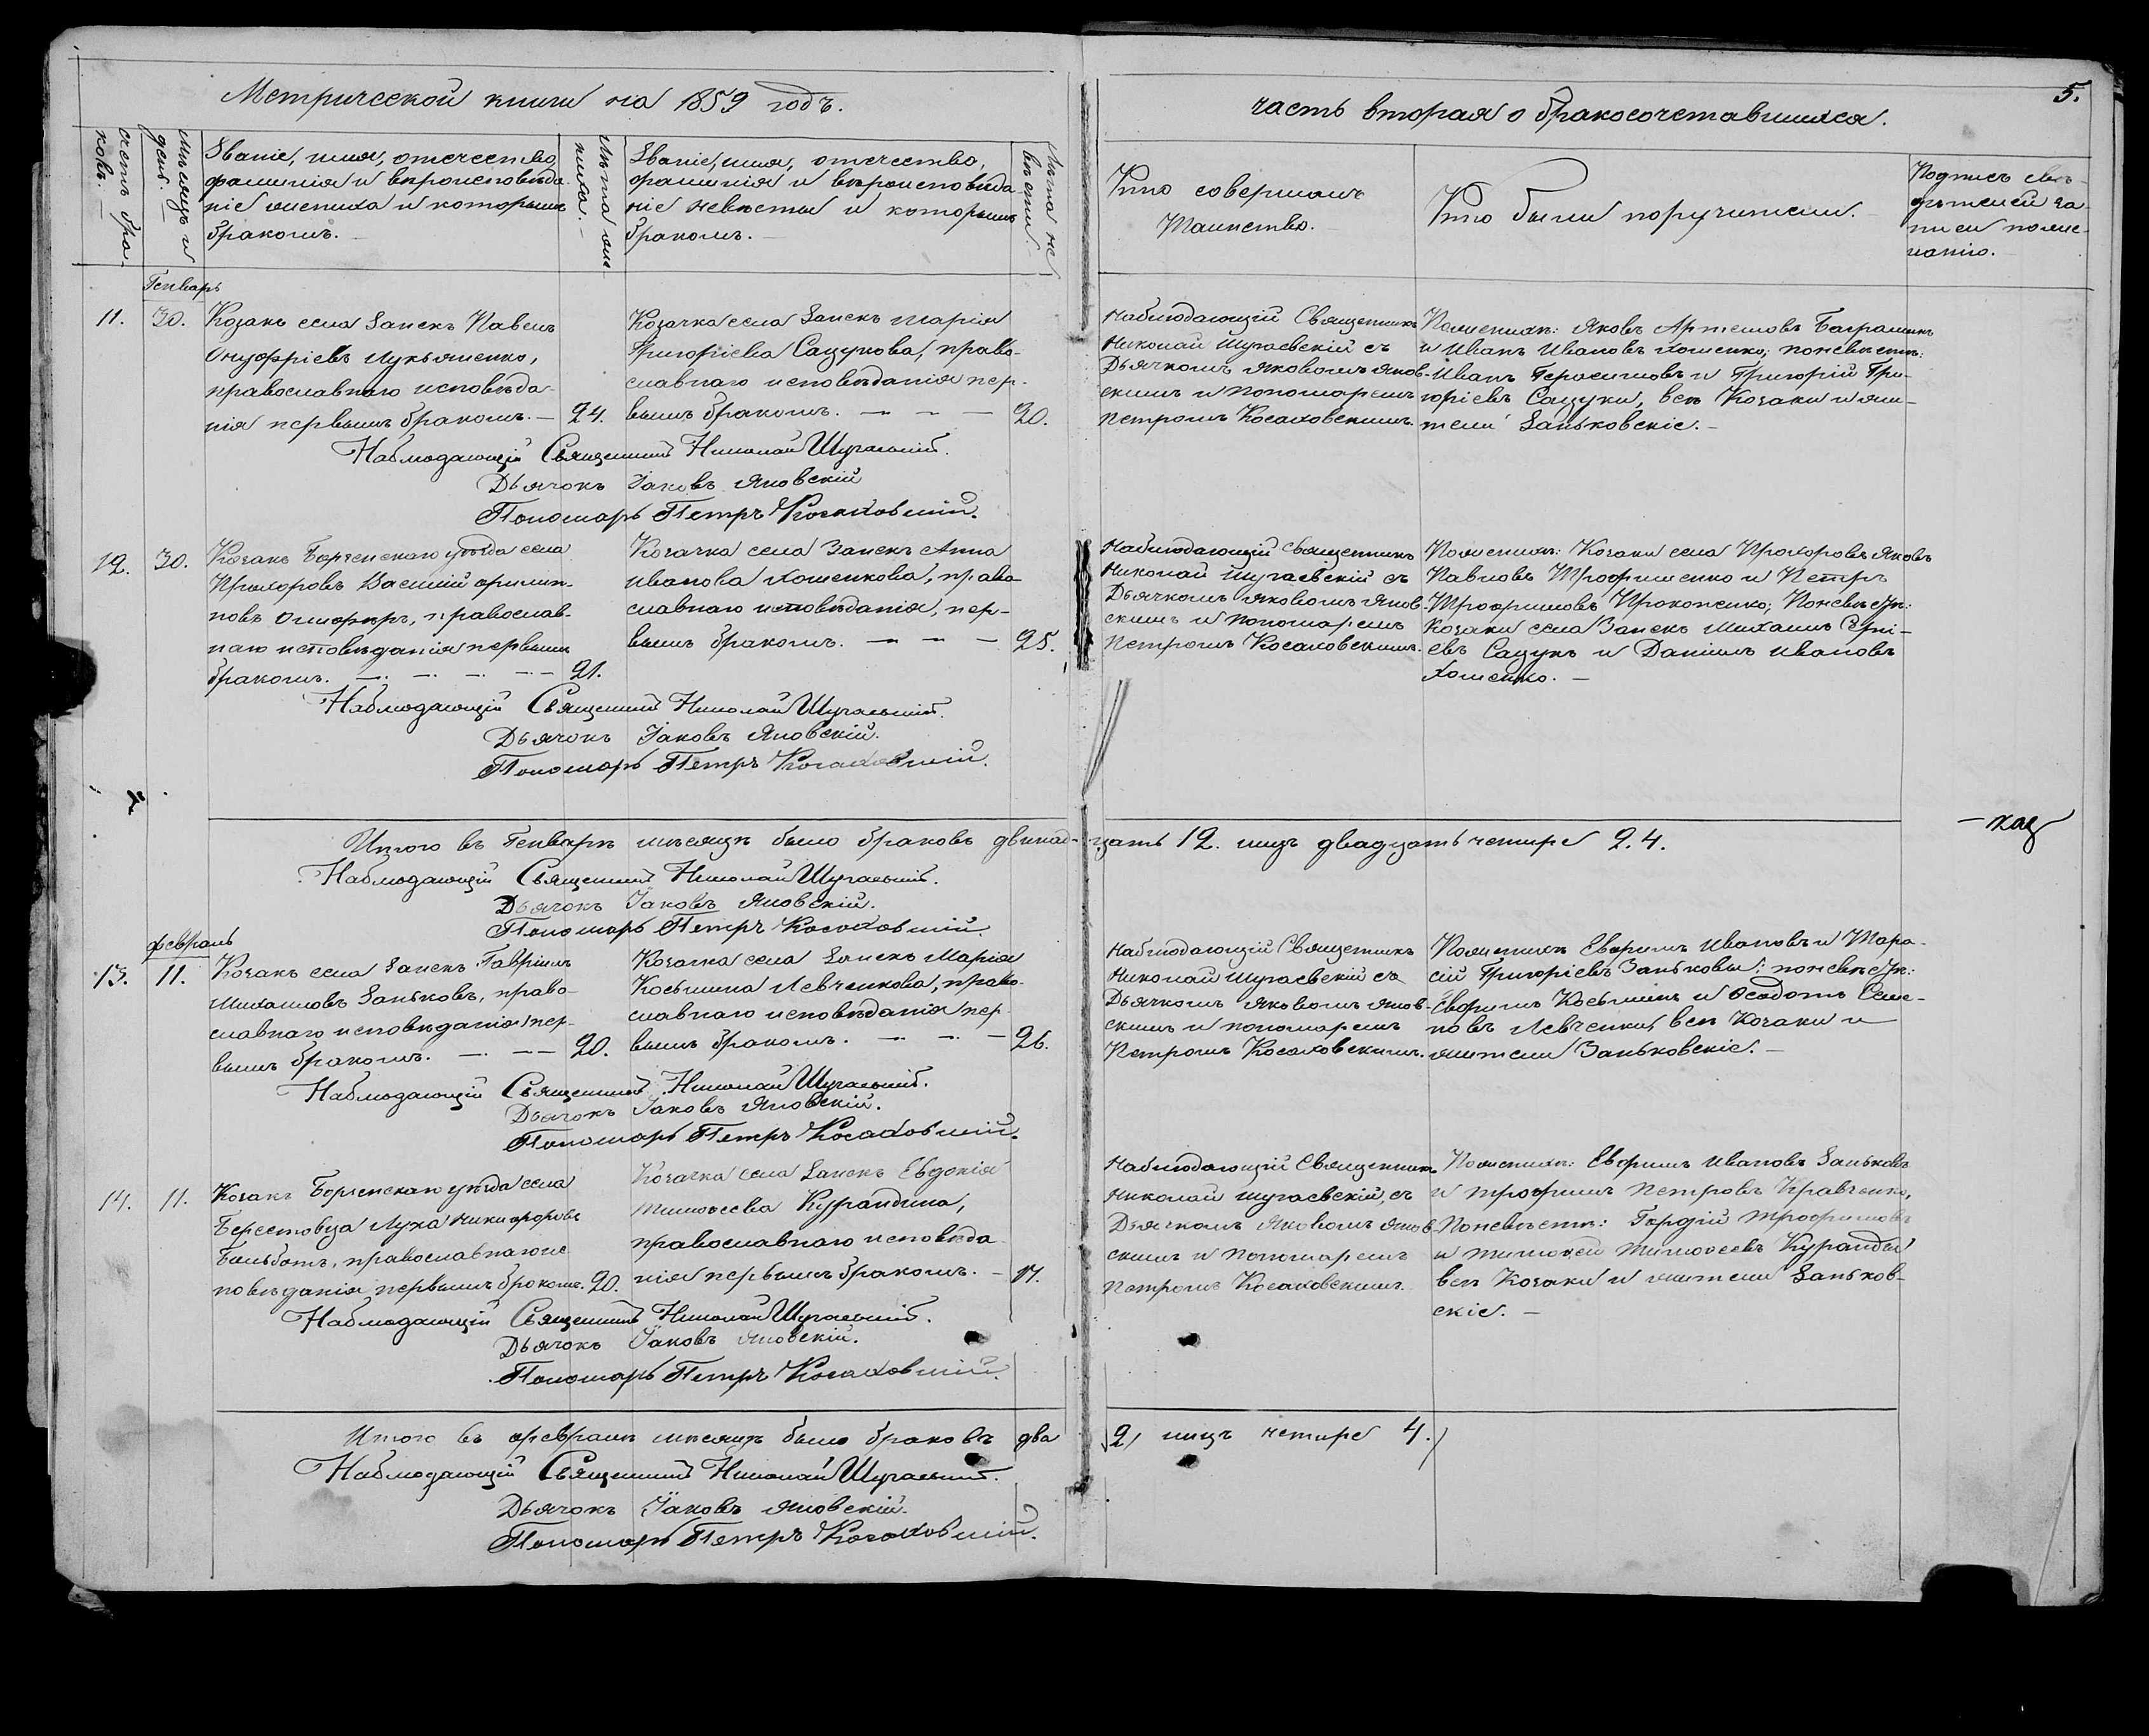 Метрической книги на 1859 годъ.
часть вторая о бракосочетавшихся.
5.
счетъ бра-
ковъ.
Мѣсяцъ и
день.
Званіе, имя, отечество,
фамилія и вѣроисповѣда-
ніе жениха и которымъ
бракомъ.
Лѣта же-
ниха.
Званіе, имя, отечество,
фамилія и вѣроисповѣда-
ніе невѣсты и которымъ
бракомъ.
Лѣта не-
вѣсты.
Кто совершалъ
Таинство.
Кто были поручители.
Подпись сви-
дѣтелей за-
писи по же-
ланію.
Генварь
11.
30.
Козакъ села Занекъ Павелъ
Онуфріевъ Лукьяненко,
православнаго исповѣда-
нія первымъ бракомъ. —
24.
Козачка села Занекъ Марія
Григоріева Сацукова, право-
славнаго исповѣданія пер-
вымъ бракомъ. — — —
20.
Наблюдающій Священникъ
Николай Шугаевскій съ
Дьячкомъ Яковомъ Янов-
скимъ и пономаремъ
Петромъ Косаховскимъ.
По женихѣ: Яковъ Артемовъ
и Иванъ Ивановъ Хоменко; по невѣстѣ:
Иванъ Герасимовъ и Григорій Гри-
горіевъ Сацуки, всѣ Козаки и жи-
тели Заньковскіе. —
Наблюдающій Священникъ Николай Шугаевскій.
Дьячокъ Іаковъ Яновскій
Пономарь Петръ Косаховскій.
12.
30.
Козакъ Борзенскаго уѣзда села
Прохоровъ Василій Филип-
повъ православ-
наго исповѣданія первымъ
бракомъ. — — — —
21.
Козачка села Занекъ Анна
Иванова Хоменкова, право-
славнаго исповѣданія, пер-
вымъ бракомъ. — — —
25.
Наблюдающій Священникъ
Николай Шугаевскій съ
Дьячкомъ Яковомъ Янов-
скимъ и пономаремъ
Петромъ Косаховскимъ.
По женихѣ: Козаки села Прохоровъ Яковъ
Павловъ Трофименко и Петръ
Трофимовъ Прокопенко; По невѣстѣ:
Козаки села Занекъ Михаилъ
евъ Сацукъ и Даніилъ Ивановъ
Хоменко. —
Наблюдающій Священникъ Николай Шугаевскій.
Дьячокъ Іаковъ Яновскій.
Пономарь Петръ Косаховскій.
Итого въ Генварѣ мѣсяцѣ было браковъ двѣнад-цать 12. лицъ двадцать четыре 24.
Наблюдающій Священникъ Николай Шугаевскій.
Дьячокъ Іаковъ Яновскій.
Пономарь Петръ Косаховскій.
Февраль
13.
11.
Козакъ села Занекъ Гавріилъ
Михаиловъ Заньковъ, право-
славнаго исповѣданія пер-
вымъ бракомъ. — — —
20.
Козачка села Занекъ Марія
Косьмина Левченкова, право-
славнаго исповѣданія пер-
вымъ бракомъ. — — —
26.
Наблюдающій Священникъ
Николай Шугаевскій съ
Дьячкомъ Яковомъ Янов-
скимъ и пономаремъ
Петромъ Косаховскимъ.
По женихѣ Евфимъ Ивановъ и Тара-
сій Григоріевъ Заньковы; по невѣстѣ:
Евфимъ Косьминъ и Феодотъ Семе-
новъ Левченки, всѣ Козаки и
жители Заньковскіе. —
Наблюдающій Священникъ Николай Шугаевскій.
Дьячокъ Іаковъ Яновскій.
Пономарь Петръ Косаховскій.
14.
11.
Козакъ Борзенскаго уѣзда села
Берестовца Лука Никифоровъ
православнаго ис-
повѣданія первымъ бракомъ.
20.
Козачка села Занекъ Евдокія
Тимоѳеева Курандина,
православнаго исповѣда-
нія первымъ бракомъ. —
17.
Наблюдающій Священникъ
Николай Шугаевскій, съ
Дьячкомъ Яковомъ Янов-
скимъ и пономаремъ
Петромъ Косаховскимъ.
По женихѣ: Евфимъ Ивановъ Заньковъ
и Трофимъ Петровъ Кравченко,
По невѣстѣ: Гордій Трофимовъ
и Тимоѳей Тимоѳеевъ Куранды
всѣ Козаки и жители Заньков-
скіе. —
Наблюдающій Священникъ Николай Шугаевскій.
Дьячокъ Іаковъ Яновскій.
Пономарь Петръ Косаховскій.
Итого въ февралѣ мѣсяцѣ было браковъ два 2, лицъ четыре 4.
Наблюдающій Священникъ Николай Шугаевскій.
Дьячокъ Іаковъ Яновскій.
Пономарь Петръ Косаховскій.